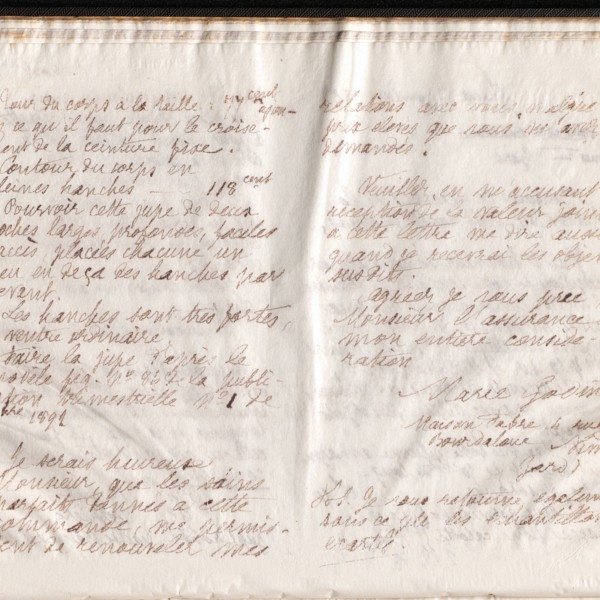 Tour du corps à la taille :
z ce qu'il faut pour le croise-
ent de la ceinture fixe.
Contour du corps en
leines hanches — 118 cent
Pourvoir cette jupe de deux
oches larges, profondes, faciles
accès, placées chacune un
eu en deçà des hanches par
evant.
Les hanches sont très fortes,
ventre ordinaire
Faire la jupe d'après le
modèle fig. de la publi-
tion trimestrielle N° 1 de
1892
Je serais heureuse
Monsieur que les soins
parfaits donnés à cette
commande, me permis-
ent de renouveler mes
relations avec vous, malgré
prix élevés que vous me
demandez.
Veuillez, en m'accusant
réception de la valeur join
à cette lettre me dire aus
quand je recevrai les objet
susdits.
Agréer je vous prie
Monsieur l'assurance
mon entière considé-
ration
Marie
Maison Fabre 4 rue
Bourdaloue
Gard)
Je vous retourne égalem
sous ce pli les échantillon